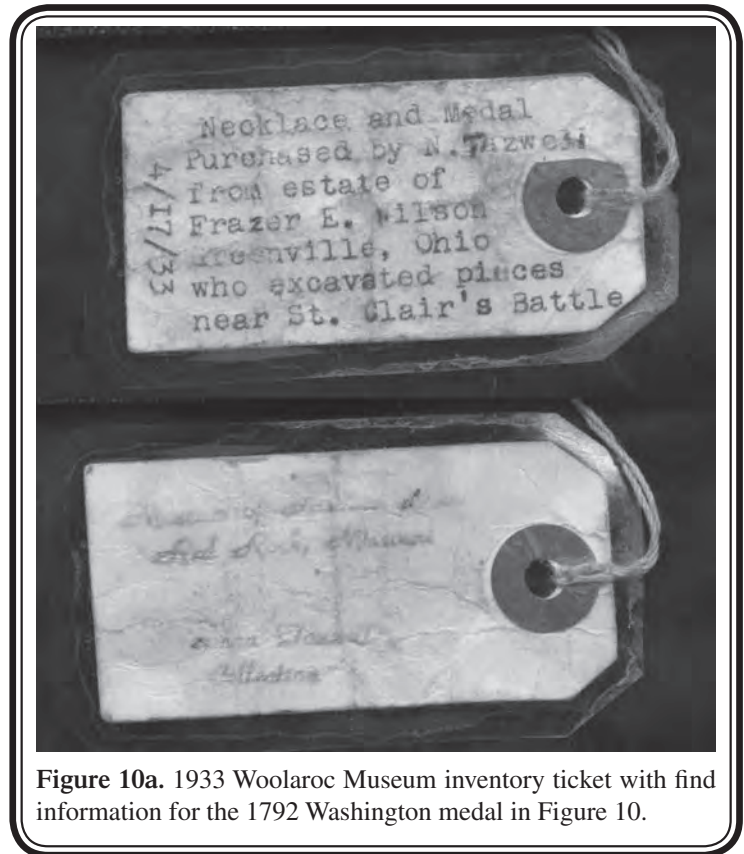 Necklace and Medal
Purchased by N. Tazwell
from estate of
Frazer E. Wilson
Greenville, Ohio
who excavated pieces
near St. Clair's Battle
4/17/33
Red Rock, Missouri
Figure 10a. 1933 Woolaroc Museum inventory ticket with find
information for the 1792 Washington medal in Figure 10.